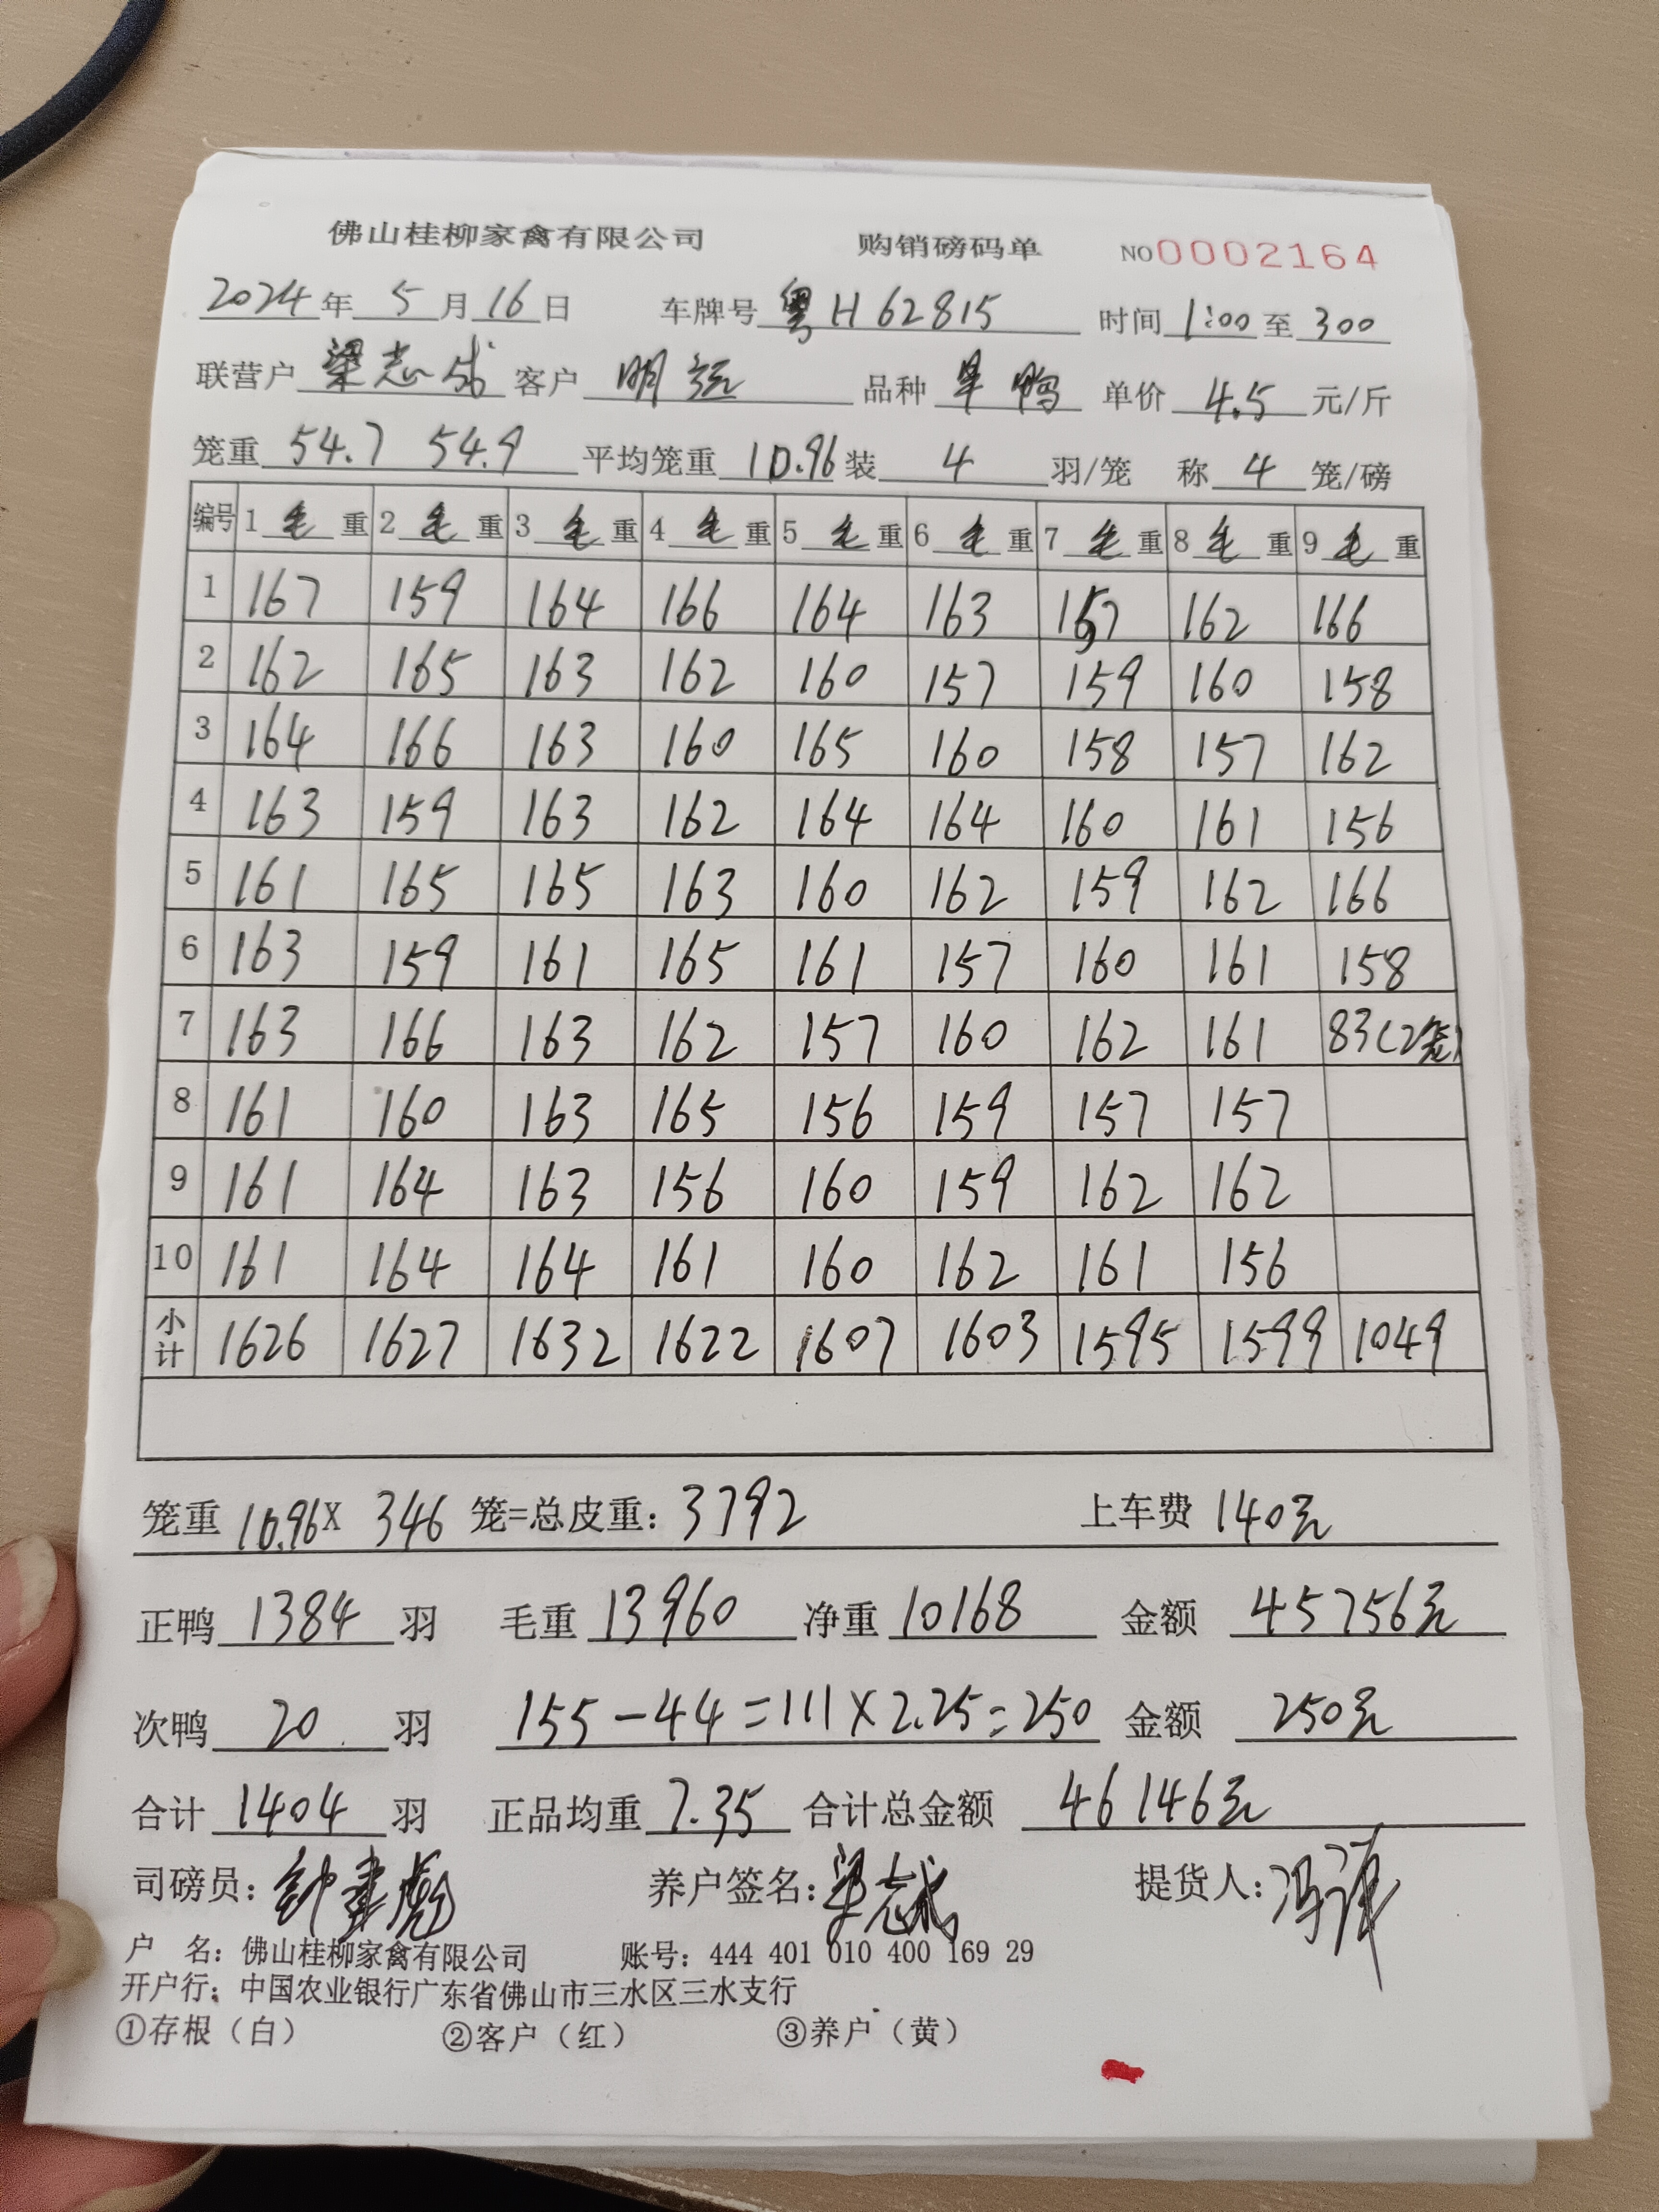 佛山桂柳家禽有限公司 购销磅码单 NO 0002164
2024年 5月16日 车牌号 粤H62815 时间 1:00 至 300
联营户 梁志成 客户 明 品种 鸭 单价 4.5 元/斤
笼重 54.7 54.9 平均笼重 10.96 装 4 羽/笼 称 4 笼/磅
编号 1 毛 重 2 毛 重 3 毛 重 4 毛 重 5 毛 重 6 毛 重 7 毛 重 8 毛 重 9 毛 重
1 167 159 164 166 164 163 157 162 166
2 162 165 163 162 160 157 159 160 158
3 164 166 163 160 165 160 158 157 162
4 163 159 163 162 164 164 160 161 156
5 161 165 165 163 160 162 159 162 166
6 163 159 161 165 161 157 160 161 158
7 163 166 163 162 157 160 162 161 83(2笼)
8 161 160 163 165 156 159 157 157
9 161 164 163 156 160 159 162 162
10 161 164 164 161 160 162 161 156
小计 1626 1627 1632 1622 1607 1603 1595 1599 1049
笼重 10.96 X 346 笼=总皮重：3792 上车费 140元
正鸭 1384 羽 毛重 13960 净重 10168 金额 45756元
次鸭 20 羽 155-44=111×2.25=250 金额 250元
合计 1404 羽 正品均重 7.35 合计总金额 46146元
司磅员： 养户签名：梁志成 提货人：
户 名：佛山桂柳家禽有限公司 账号：444 401 010 400 169 29
开户行：中国农业银行广东省佛山市三水区三水支行
①存根（白） ②客户（红） ③养户（黄）